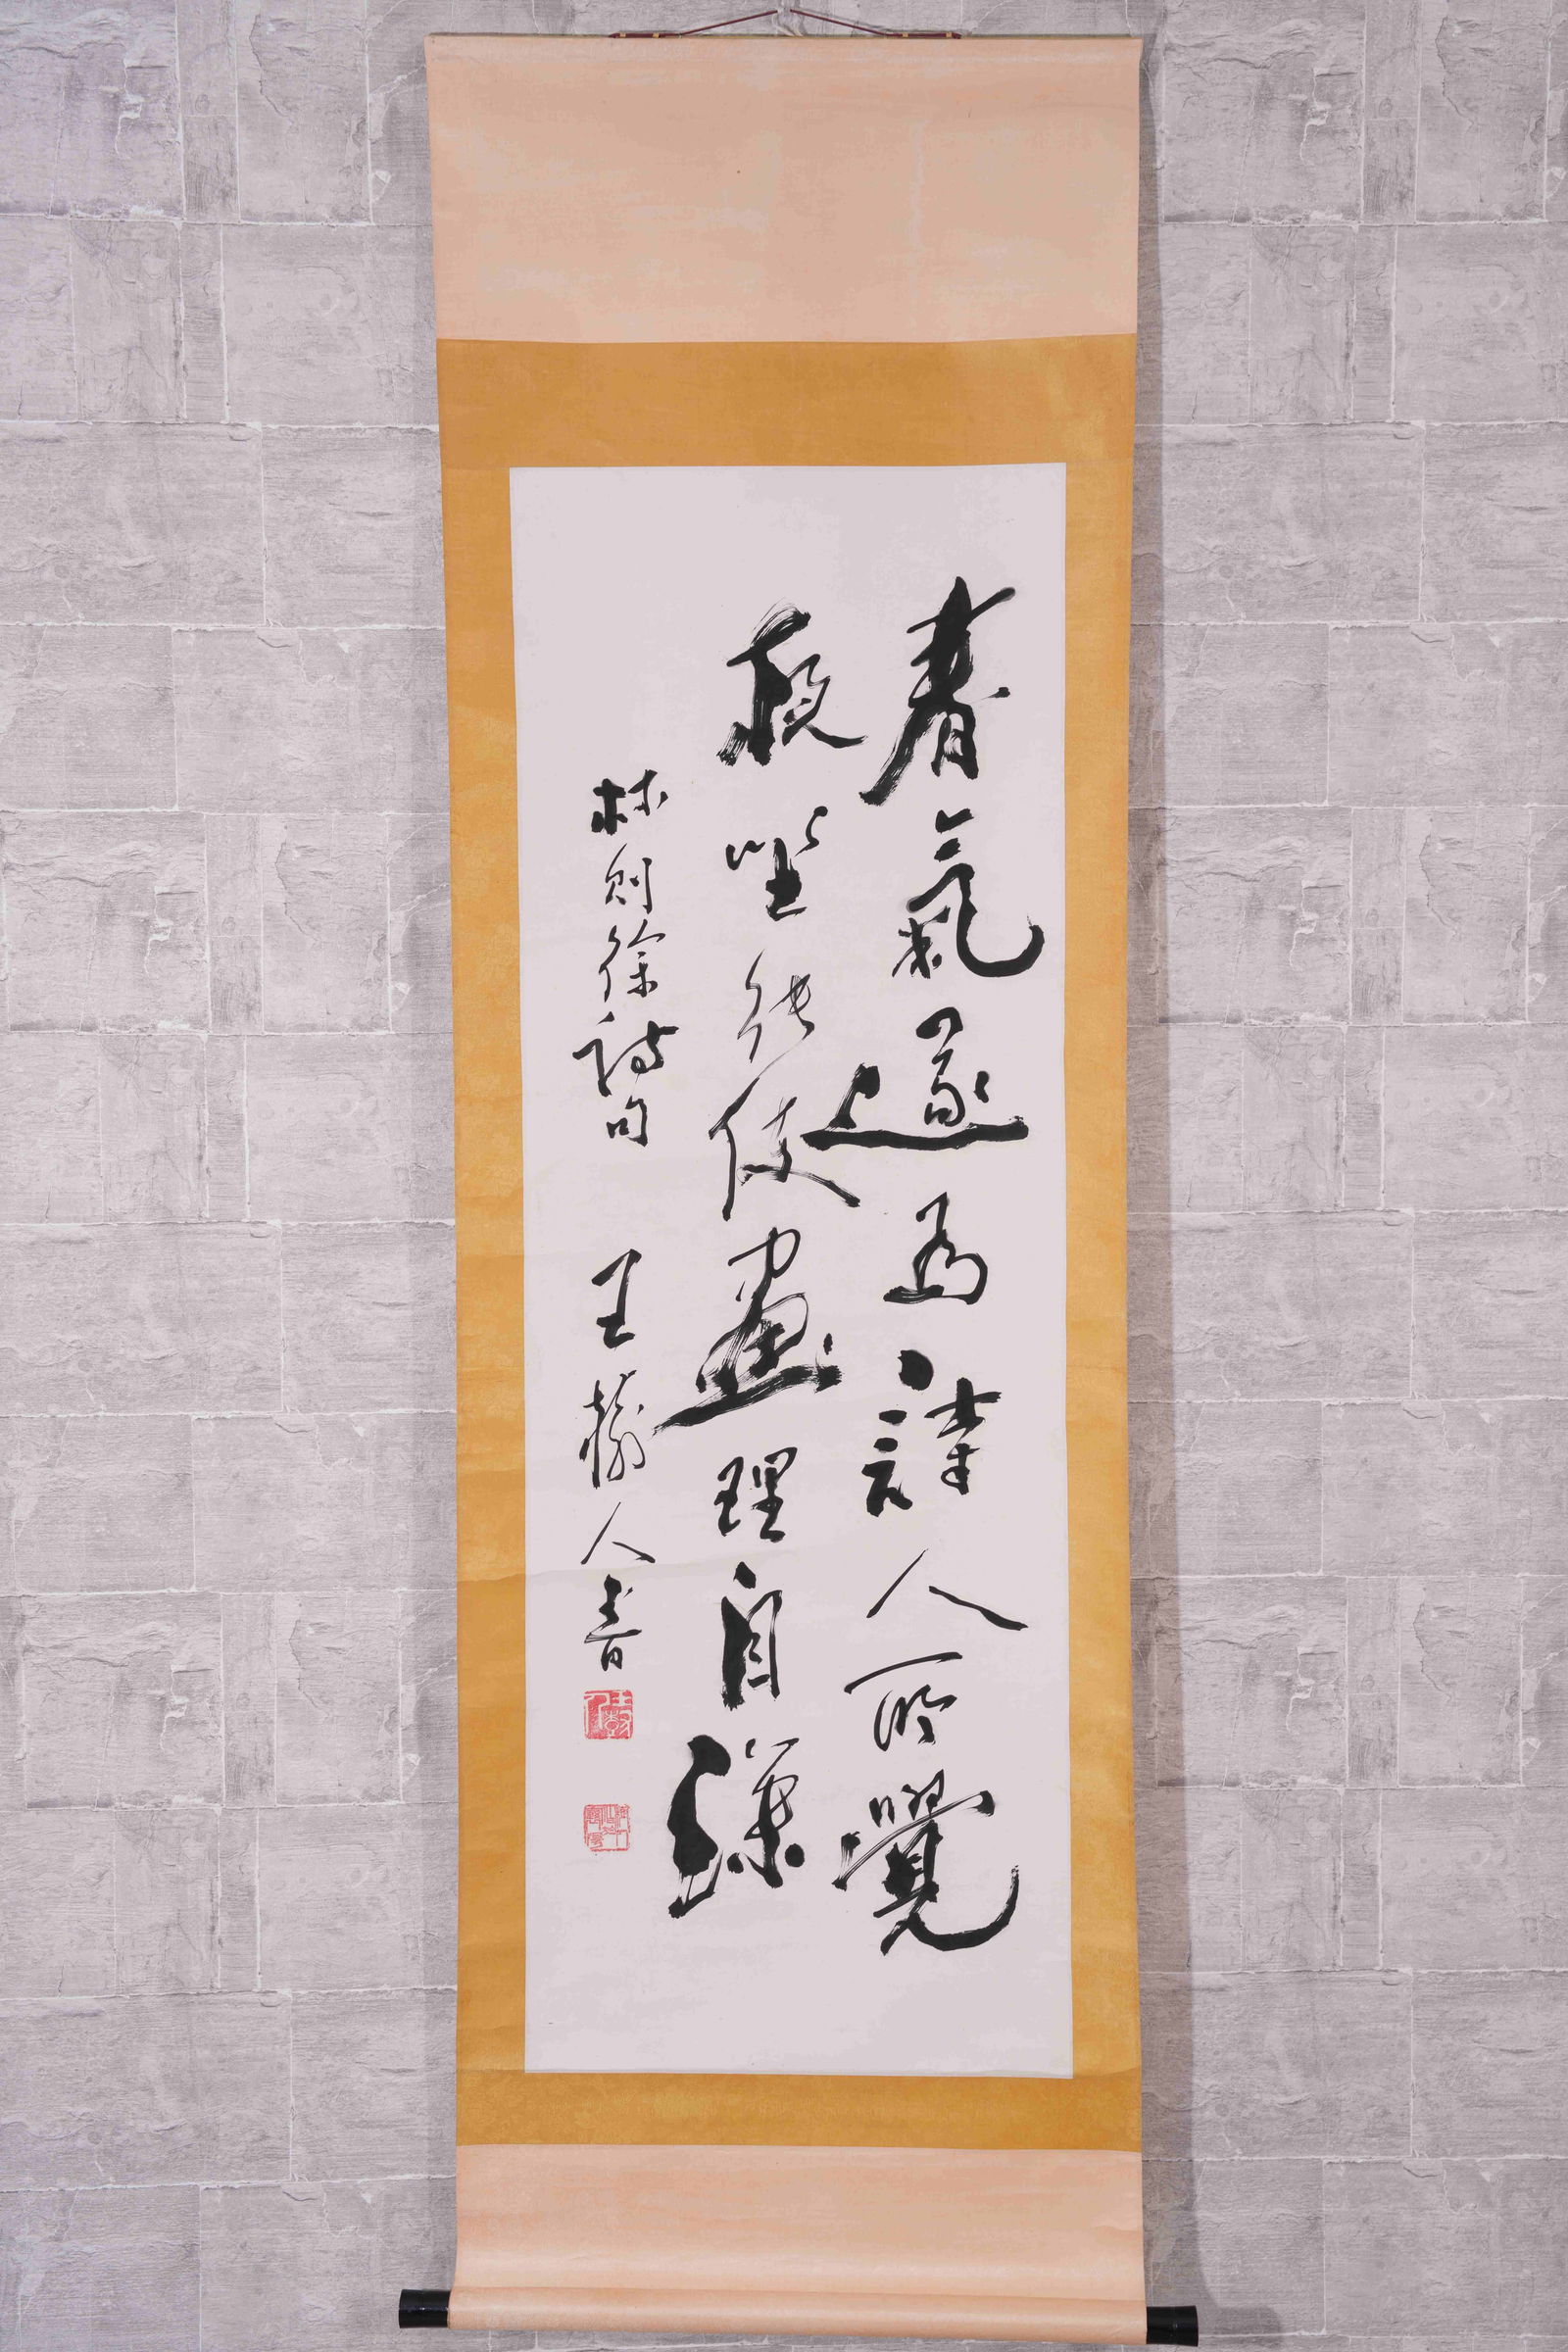 春氣遂為詩人所覺
夜坐能使畫理自深
林則徐詩句 王樹人書